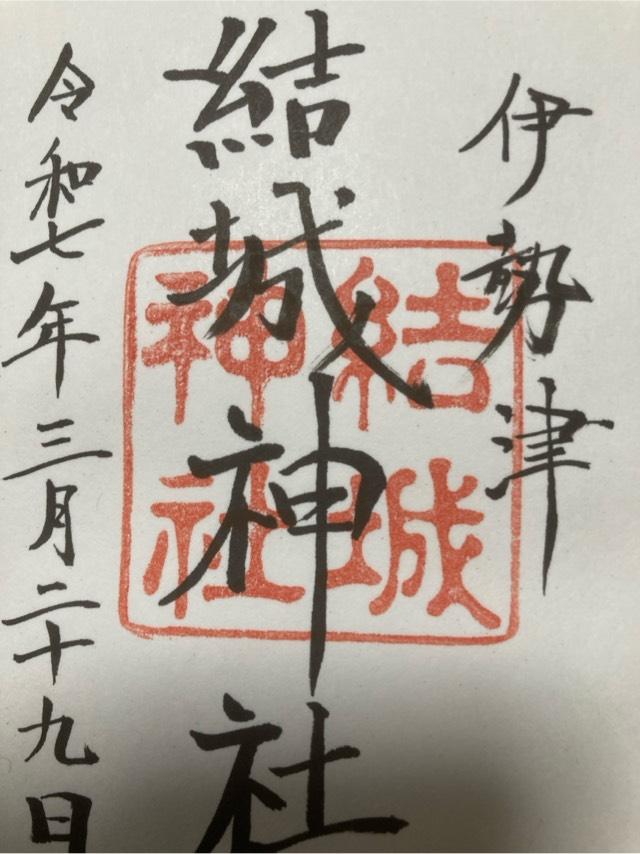 伊勢津
結城神社
結城
神社
令和七年三月二十九日